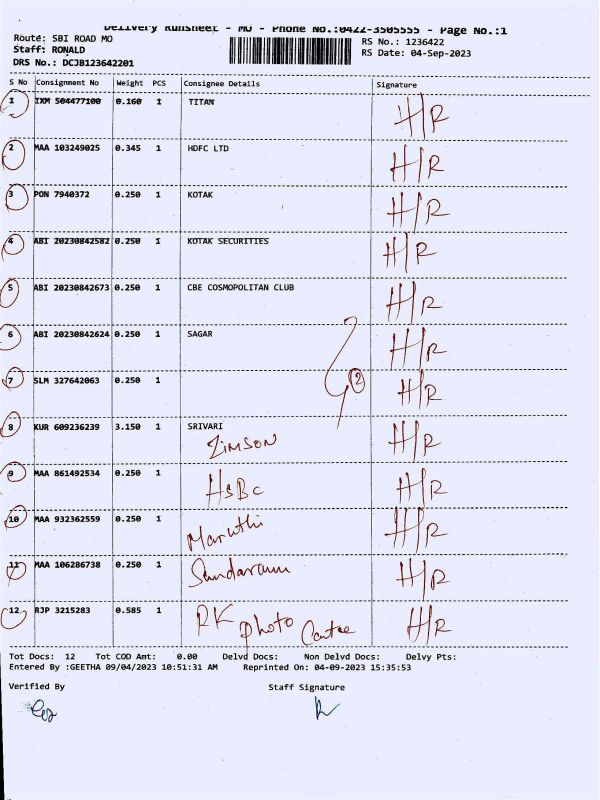 Delivery Runsheet - MO - Phone No.:0422-3505555 - Page No.:1
Route: SBI ROAD MO
RS No.: 1236422
Staff: RONALD
RS Date: 04-Sep-2023
DRS No.: DCJB123642201
S No Consignment No Weight PCS Consignee Details Signature
1 IXM 504477100 0.160 1 TITAN H/R
2 MAA 103249025 0.345 1 HDFC LTD H/R
3 PON 7940372 0.250 1 KOTAK H/R
4 ABI 20230842582 0.250 1 KOTAK SECURITIES H/R
5 ABI 20230842673 0.250 1 CBE COSMOPOLITAN CLUB H/R
6 ABI 20230842624 0.250 1 SAGAR H/R
7 SLM 327642063 0.250 1 2 H/R
8 KUR 609236239 3.150 1 SRIVARI H/R
ZIMSON
9 MAA 861492534 0.250 1 HSBC H/R
10 MAA 932362559 0.250 1 Maruthi H/R
11 MAA 106286738 0.250 1 Sundaram H/R
12 RJP 3215283 0.585 1 RK Photo Centre H/R
Tot Docs: 12 Tot COD Amt: 0.00 Delvd Docs: Non Delvd Docs: Delvy Pts:
Entered By :GEETHA 09/04/2023 10:51:31 AM Reprinted On: 04-09-2023 15:35:53
Verified By Staff Signature